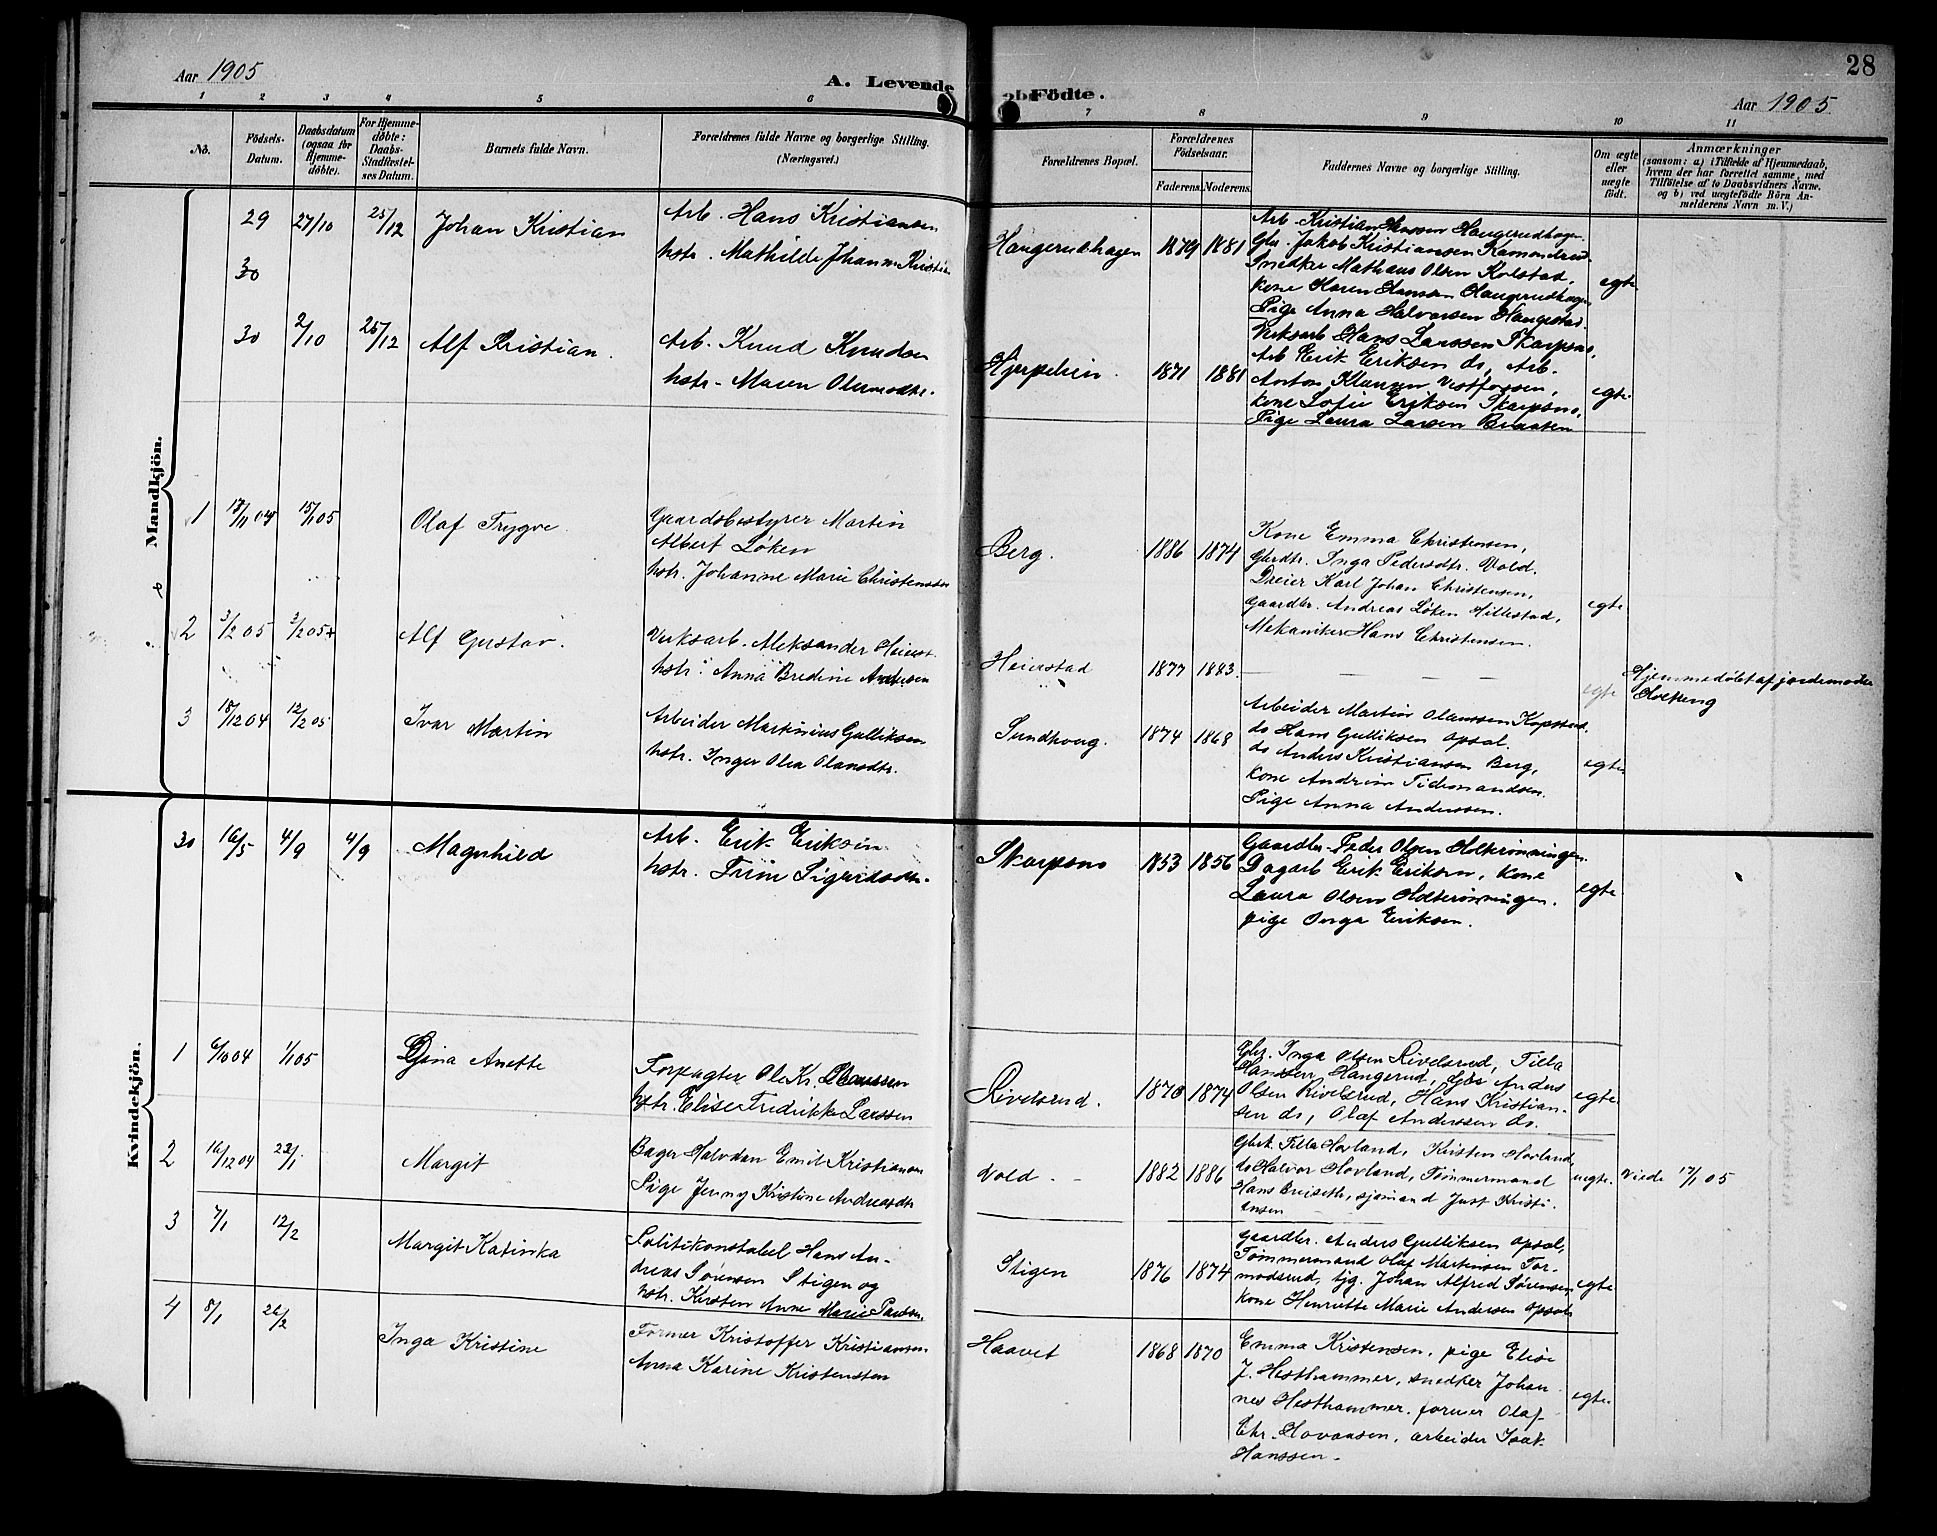 28
Aar 1905
A. Levende Födte.
Aar 1905
1 2 3 4 5 6 7 8 9 10 11
No.
Födsels-
Datum.
Daabsdatum
(ogsaa for
Hjemme-
döbte).
For Hjemme-
döbte:
Daabs-
Stadfæstel-
ses Datum.
Barnets fulde Navn.
Forældrenes fulde Navne og borgerlige Stilling.
(Næringsvei.)
Forældrenes Bopæl.
Forældrenes
Födselsaar.
Faderens. Moderens.
Faddernes Navne og borgerlige Stilling.
Om ægte
eller
uægte
födt.
Anmærkninger
(saasom: a) i Tilfælde af Hjemmedaab,
hvem der har forrettet samme, med
Tilföielse af to Daabsvidners Navne,
og b) ved uægtefödte Börn An-
melderens Navn m. V.)
Mandkjön.
29 27/10 25/12 Johan Kristian
30
Arb. Hans Kristiansen
hstr. Mathilde Johanne Kristian
Haugerudhagen 1879 1881
Arb. Kristian Hanssen Haugerudhagen
Gbr. Jakob Kristiansen
Snedker Mathæus Olsen Kolstad,
Kone Karen Hansen Haugerudhagen
Pige Anna Halvorsen Haugestad.
egte
30 2/10 25/12 Alf Kristian.
Arb. Knud Knudsen
hstr. Maren Olsmodtr.
Hjerpelien. 1871 1881
Verksarb Hans Larssen Skarpsno,
Arb Erik Eriksen do, Arb.
Anton Klausen Vestfossen,
Kone Sofie Eriksen Skarpsno,
Pige Laura Larsen Braaten
egte.
1 17/11 04 15/1 05 Olaf Trygve.
Gaardsbestyrer Martin
Albert Løken
hstr. Johanne Marie Christensen
Berg. 1886 1874
Kone Emma Christensen,
Gbrdtr. Inga Pedersdtr. Vold.
Dreier Karl Johan Christensen,
Gaardbr. Andreas Løken Hillestad,
Mekaniker Hans Christensen.
egte
2 3/2 05 3/2 05 Alf Gustav.
Verksarb. Aleksander Heierst.
hstr. Anna Bredine Andersen
Heierstad 1877 1883.
egte Hjemmedøbt af jordemoder
Holtung
3 18/12 04 12/2 05 Ivar Martin
Arbeider Martinius Gulliksen
hstr. Inger Olea Olausdtr.
Sundhoug. 1874 1868
Arbeider Martin Olaussen Kopstad,
do Hans Gulliksen Opsal.
do Anders Kristiansen Berg,
Kone Andrine Tidemandsen.
Pige Anna Anderssen.
egte
Kvindekjön.
30 16/5 4/9 4/9 Magnhild
Arb. Erik Eriksen
hstr. Trine Sigridsdtr.
Skarpsno 1853 1856
Gaardbr. Peder Olsen Holtrønningen
Dagarb Erik Eriksen, Kone
Laura Olsen Holterønningen.
pige Inga Eriksen.
egte
1 6/10 04 1/1 05 Gina Anette
Forpagter Ole Kr. Claussen
hstr. Elise Fredrikke Larssen
Rivelsrud. 1870 1874
Gbr. Inga Olsen Rivelsrud, Tilla
Hanssen Haugerud, Gbr Anders
Olsen Rivelsrud, Hans Kristian-
sen do, Olaf Anderssen do.
egte.
2 16/12 04 22/1 Margit
Bager Halvdan Emil Kristiansen
Pige Jenny Kristine Andreasdtr
Vold. 1882 1886
Gbrk. Tilla Hovland, Kirsten Hovland,
do Halvor Hovland, Tømmermand
Hans Breiseth, sjømand Just Kristi-
ansen
uegte. Viede 17/1 05
3 7/1 12/2 Margit Katinka
Politikonstabel Hans An-
dreas Sørensen Stigen og
hstr. Kirsten Anne Marie Paulsen,
Stigen 1876 1874
Gaardbr. Anders Gulliksen Opsal,
Tømmermand Olaf Martinsen Tor-
modsrud, tjg. Johan Alfred Sørensen
Kone Henriette Marie Andersen Opsal
egte
4 8/1 26/2 Inga Kristine
Former Kristoffer Kristiansen
Anna Karine Kristensten
Haavet 1868 1870
Emma Kristensen, pige Elise
J. Hesthammer, snedker Johan-
nes Hesthammer. former Olaf
Chr. Hovaasen, arbeider Isak
Hanssen.
egte.